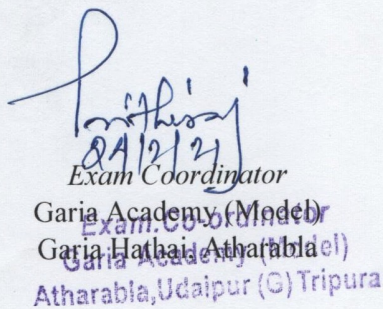 Exam Coordinator
Garia Academy (Model)
Garia Hathai, Atharabla
Exam.Co-ordinator
Garia Academy (Model)
Atharabla,Udaipur (G) Tripura